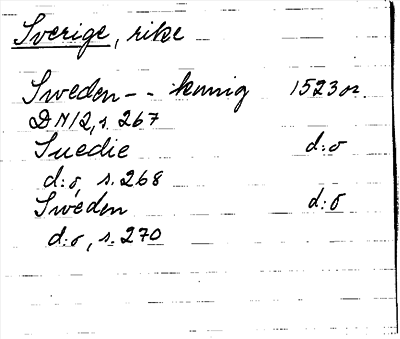 Sverige, rike
Sweden -- konnig 1523 or.
DN 12, s. 267
Suedie d:o
d:o, s. 268
Sweden d:o
d:o, s. 270